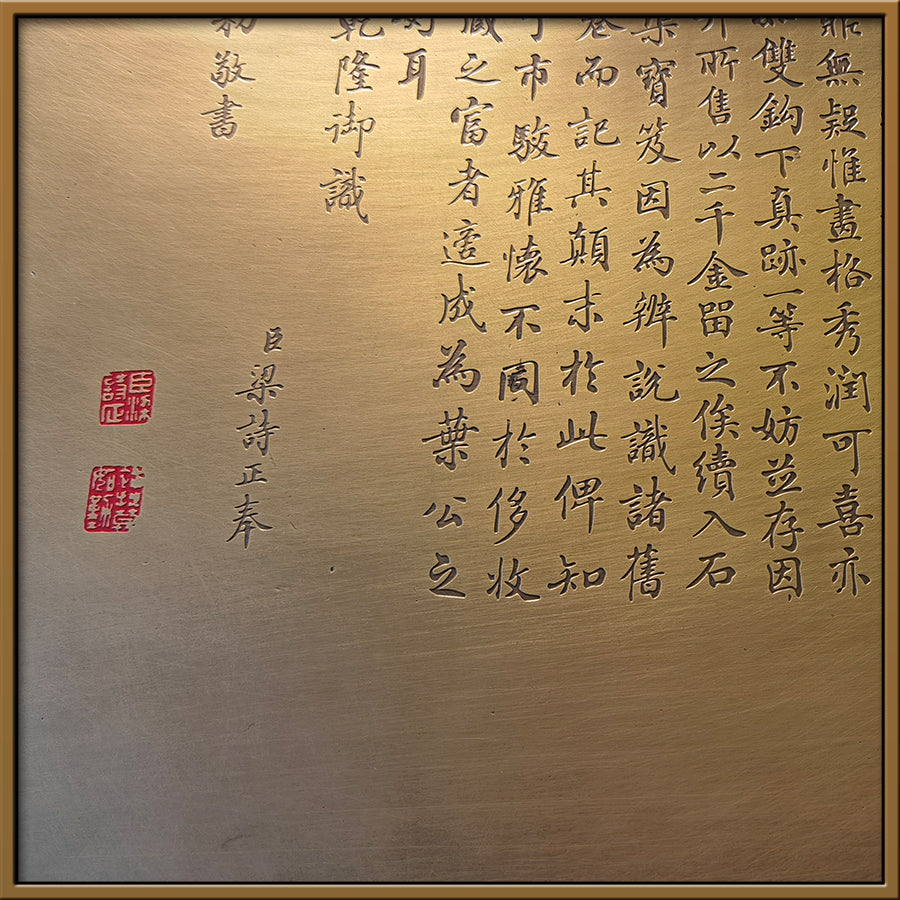 鼎無疑惟畫格秀潤可喜亦
如雙鈎下真跡一等不妨並存因
并所售以二千金留之俟續入石
渠寶笈因為辨說識諸舊
卷而記其顛末於此俾知
予市駿雅懷不於侈收
藏之富者適成為葉公之
好耳
乾隆御識
臣梁詩正奉
勑敬書
臣梁詩正